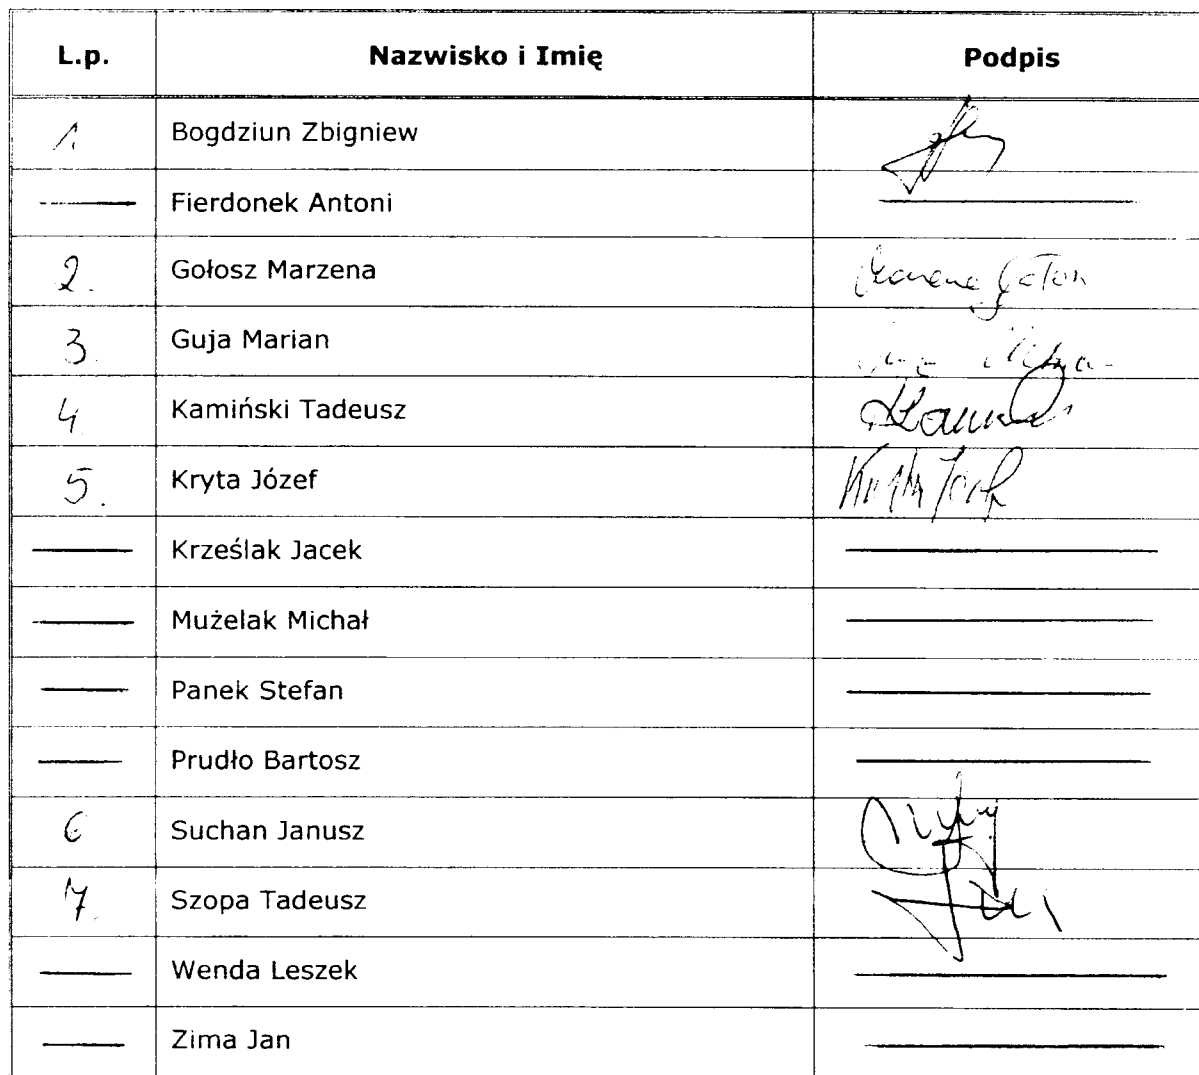 L.p. Nazwisko i Imię Podpis
1. Bogdziun Zbigniew
Fierdonek Antoni
2. Gołosz Marzena
3. Guja Marian
4 Kamiński Tadeusz
5. Kryta Józef
Krześlak Jacek
Mużelak Michał
Panek Stefan
Prudło Bartosz
6 Suchan Janusz
7. Szopa Tadeusz
Wenda Leszek
Zima Jan